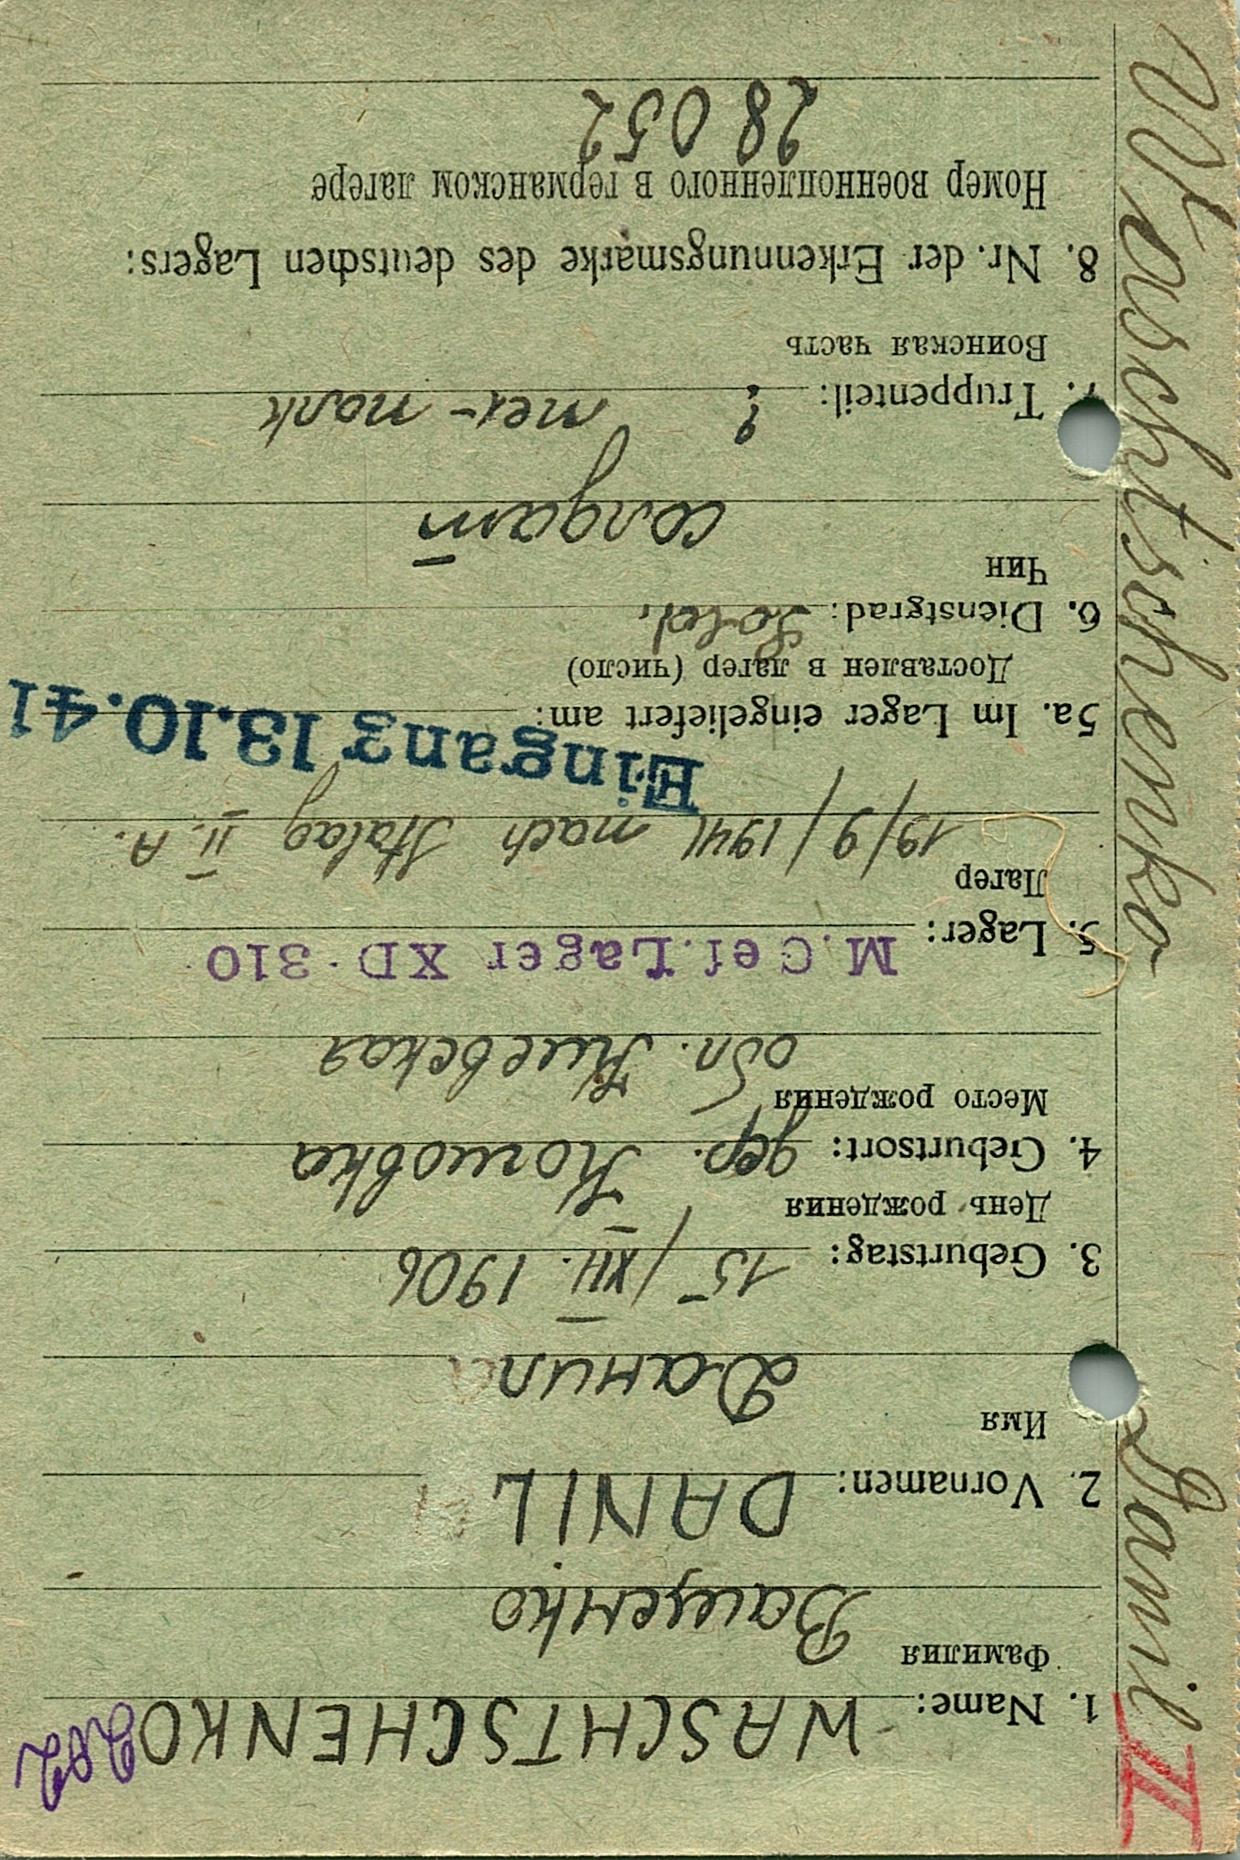 Waschtschenko Danil II
1. Name: WASCHTSCHENKO
Фамилия
Ващенко
2. Vornamen: DANIL
Имя
Данил
3. Geburtstag: 15/XII. 1906
День рождения
4. Geburtsort: дер.
Место рождения
обл. Киевская
5. Lager: M. Gef. Lager XD 310
Лагер
19/9/1941 nach Stalag II. A.
Eingang 13.10.41
5a. Im Lager eingeliefert am:
Доставлен в лагер (число)
6. Dienstgrad: Sold.
Чин
солдат
7. Truppenteil: ?
Воинская часть
8. Nr. der Erkennungsmarke des deutschen Lagers:
Номер военнопленного в германском лагере
28052